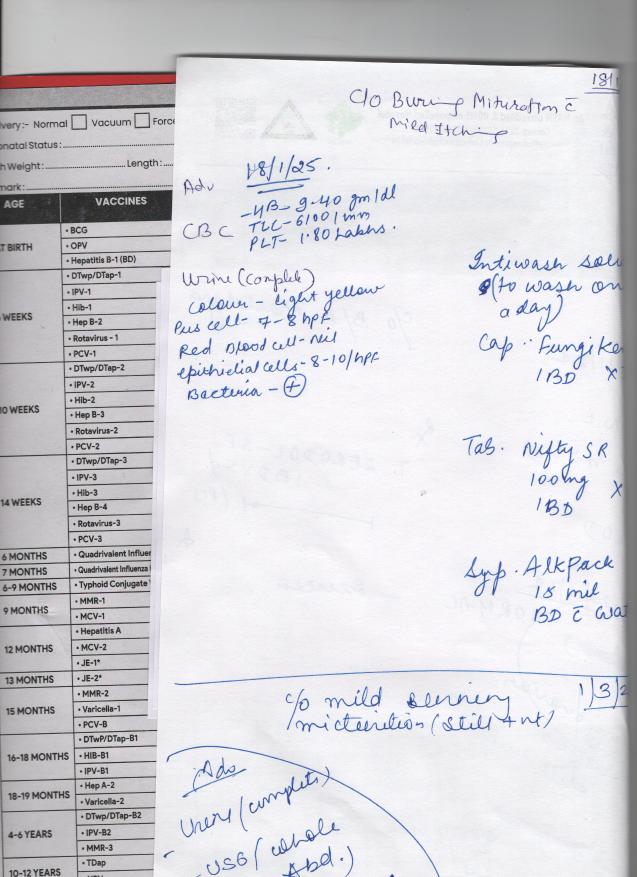 very:- Normal Vacuum Force
onatal Status:
h Weight: Length:
mark:
AGE VACCINES
T BIRTH
• BCG
• OPV
• Hepatitis B-1 (BD)
WEEKS
• DTwp/DTap-1
• IPV-1
• Hib-1
• Hep B-2
• Rotavirus - 1
• PCV-1
10 WEEKS
• DTwp/DTap-2
• IPV-2
• Hib-2
• Hep B-3
• Rotavirus-2
• PCV-2
14 WEEKS
• DTwp/DTap-3
• IPV-3
• Hib-3
• Hep B-4
• Rotavirus-3
• PCV-3
6 MONTHS • Quadrivalent Influen
7 MONTHS • Quadrivalent Influenza
6-9 MONTHS • Typhoid Conjugate
9 MONTHS
• MMR-1
• MCV-1
12 MONTHS
• Hepatitis A
• MCV-2
• JE-1*
13 MONTHS • JE-2*
15 MONTHS
• MMR-2
• Varicella-1
• PCV-B
16-18 MONTHS
• DTwP/DTap-B1
• HIB-B1
• IPV-B1
18-19 MONTHS
• Hep A-2
• Varicella-2
4-6 YEARS
• DTwp/DTap-B2
• IPV-B2
• MMR-3
10-12 YEARS
• TDap
18/1
C/O Buring Mituration c̄
Mild Itching
Adv 18/1/25.
CBC
- HB - 9.40 gm/dl
TLC - 6100/mm
PLT - 1.80 Lakhs.
Urine (Complete)
Colour - Light yellow
Pus cell - 7-8 hpf
Red Blood cell - Neil
epithidial cells - 8-10/hpf
Bacteria - (+)
Intiwash solu
(to wash on
a day)
Cap. Fungike
1 BD X
Tab. Nifty SR
100mg X
1 BD
Syp. AlkPack
15 mil
BD c̄ wa
1/3/2
c/o mild burning
micturition (still + nt)
Adv
- Urine (complete)
- USG (whole
Abd.)